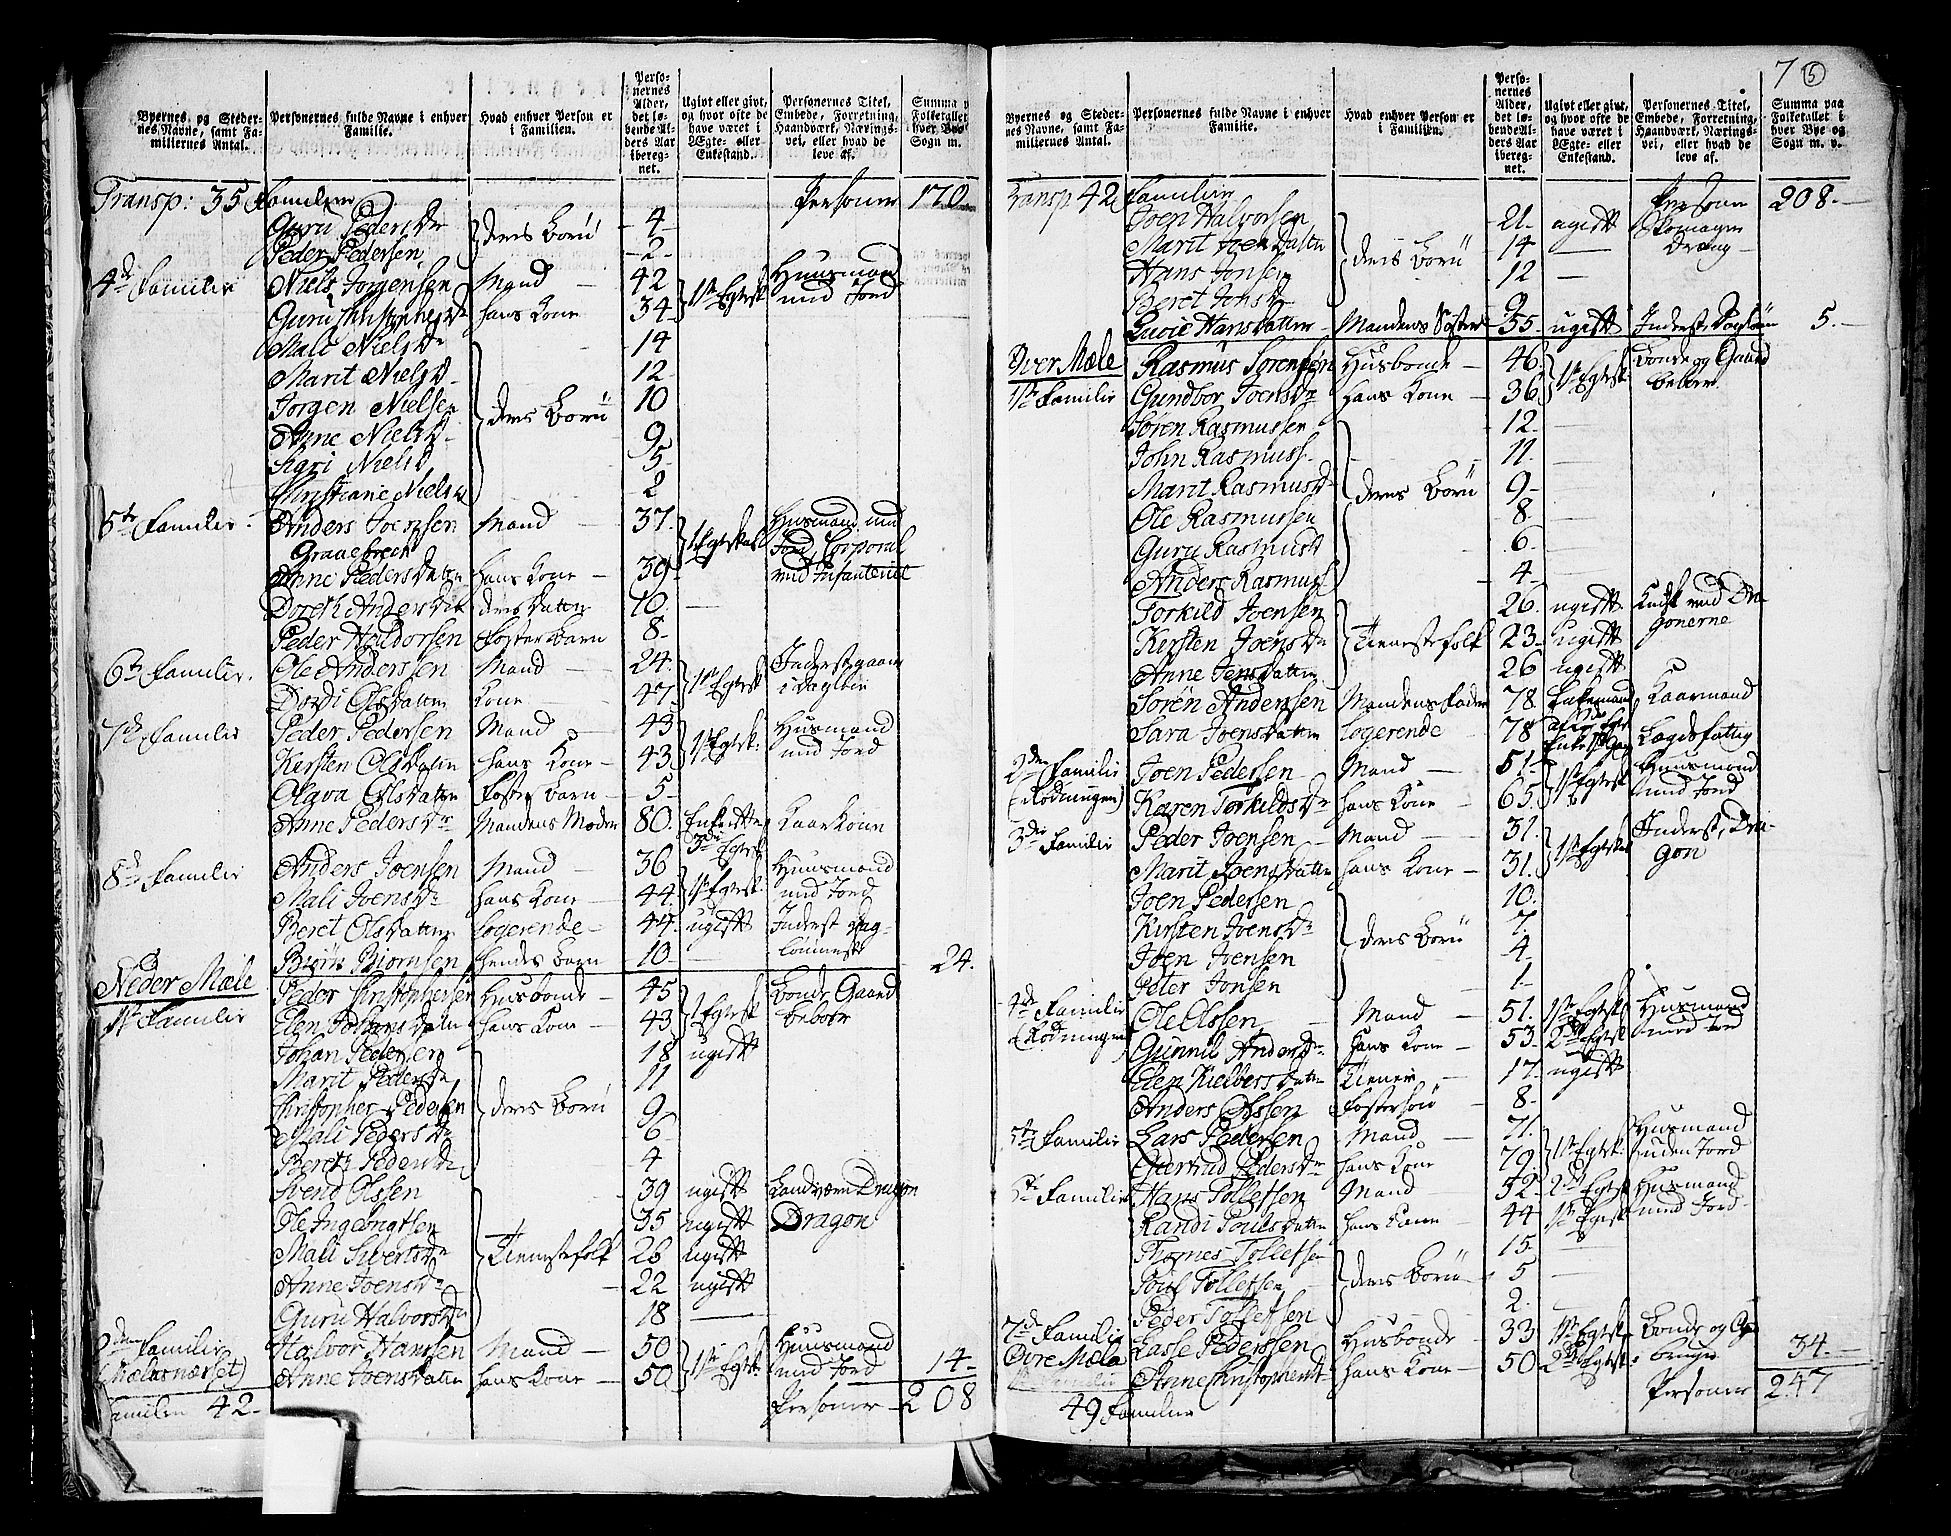 Byernes og Steder-
nes Navne, samt Fa-
miliernes Antal.
Personernes fulde Navne i enhver
Familie.
Hvad enhver Person er
i Familien.
Perso-
nernes
Alder,
det lø-
bende Al-
ders Aar
ibereg-
net.
Ugivt eller givt,
og hvor ofte de
have været i
Ægte- eller
Enkestand.
Personernes Titel,
Embede, Forretning,
Haandværk, Nærings-
vei, eller hvad de
leve af.
Summa
Folketallet
hver Bye
Sogn m.
Transp: 35 Familier Personer 170
Guru Peders Dr deres Børn 4
Peder Pedersen 2
4de Familie Niels Jorgensen Mand 42 1ste Egtesk Huusmand
Guru Christophersdr hans Kone 34 med Jord
Mali Nielsdr 14
Marit Nielsd 12
Jorgen Nielsen deres Børn 10
Anne Nielsd 9
Sigri Nielsd 5
Christiane Nielsd 2
5te Familie Anders Joensen Mand 37 1 Egteskab Huusmand med
Graaebrech Jord, Corporal
Anne Pedersdatter hans Kone 39 ved Infanteriet
Dorethe Andersdtr deres datter 10
Peder Haldorsen Foster barn 8
6te Familie Ole Anderssen Mand 24 1ste Egtesk Inderst gaaer
Dordi Olsdatter Kone 47 i Dagleie
7de Familie Peder Pedersen Mand 43 1ste Egtesk: Huusmand
Kirsten Olsdatter hans Kone 43 med Jord
Olava Olsdatter Foster barn 5
Anne Pedersdr Mandens Moder 80 Enke efter Kaarkone
3die Egtesk
8de Familie Anders Joensen Mand 36 1ste Egtesk: Huusmand
Mali Joensdr hans Kone 44 med Jord
Beret Olsdatter Logerende 44 ugivt Inderst
Biørn Biornsen hendes barn 10 24.
Neder Mæle Peder Christophersen Husbonde 45 1 Egtesk Bonde Gaard
1ste Familie Elen Johansdatter hans Kone 43 beboer
Johan Pedersen 18 ugivt
Marit Pedersdr 11
Christopher Pedersen deres Børn 9
Mali Pedersdr 6
Beret Pedersdr 4
Svend Olssen 39 ugivt Landværn Dragon
Ole Ingebrigtsen 35 ugivt Dragon
Mali Sivertsdr Tienestefolk 26 ugivt
Anne Joensdr 22 ugivt
Guru Halvorsdr 18
2den Familie Halvor Hanssen Mand 50 1ste Egtesk Huusmand
(Mælesnærset) Anne Joensdatter hans Kone 50 med Jord 14
Familier 42 Personer 208
7 5
Byernes og Steder-
nes Navne, samt Fa-
miliernes Antal.
Personernes fulde Navne i enhver
Familie.
Hvad enhver Person er
i Familien.
Perso-
nernes
Alder,
det lø-
bende Al-
ders Aar
ibereg-
net.
Ugivt eller givt,
og hvor ofte de
have været i
Ægte- eller
Enkestand.
Personernes Titel,
Embede, Forretning,
Haandværk, Nærings-
vei, eller hvad de
leve af.
Summa paa
Folketallet i
hver Bye og
Sogn m. v.
Transp 42 Familier Personer 208
Joen Halvorsen 21 ugivt Skomager
Marit Joensdatter deres Børn 14 Dreng
Hans Jonsen 12
Beret Jonsdr 9
Lucie Hansdatter Mandens Søster 55 ugivt Inderst 5
Over Mæle Rasmus Sorensøn Husbonde 46 1ste Egtesk Bonde og Gaard
1ste Familie Gundbor Joensdr hans Kone 36 beboer
Søren Rasmussen 12
John Rasmuss. 11
Marit Rasmusd deres Børn 9
Ole Rasmussen 8
Guru Rasmusd 6
Anders Rasmuss 4
Torkild Joensen 26 ugivt Kudsk ved Dra-
Kersten Joensdr Tienestefolk 23 ugivt gonerne
Anne Jensdatter 26 ugivt
Sørøn Andersen Mandens Fader 78 Enkemand Kaarmand
Sara Joensdatter Logerende 78 Lægdsfattig
2den Familie Joen Pedersen Mand 51 1ste Egtesk Huusmand
(Rødningen) Karen Torkildsdr hans Kone 65 med Jord
3die Familie Peder Joensen Mand 31 1ste Egtesk Inderst, Dra-
Marit Joensdatter hans Kone 31 gon
Joen Pedersen 10
Kirsten Joensdr deres Børn 7
Joen Joensen 4
Peter Jonsen 1
4de Familie Ole Olssen Mand 51 1ste Egtesk Huusmand
(Rødningen) Gunnil Andersdr hans Kone 53 2den Egtesk med Jord
Elen Kielbersdatter Tiener 17 ugivt
Anders Olssen Fostersøn 8
5te Familie Lars Pedersen Mand 71 1ste Egtesk: Huusmand
Giertrud Pedersdr hans Kone 79 uden Jord
Familie Hans Tollefsen Mand 52 2den Egtesk Huusmand
Randi Poulsdatter hans Kone 44 1ste Egtesk med Jord
Thomes Tollefsen 15
Poul Tollefsen deres Børn 5
Peder Tollefsen 2
7de Familie Lasse Pederssen Husbonde 33 1ste Egtesk Bonde og
Øvre Mæla Anne Christophersd hans Kone 50 2den Egtesk bruger 34
49 Familier Personer 247